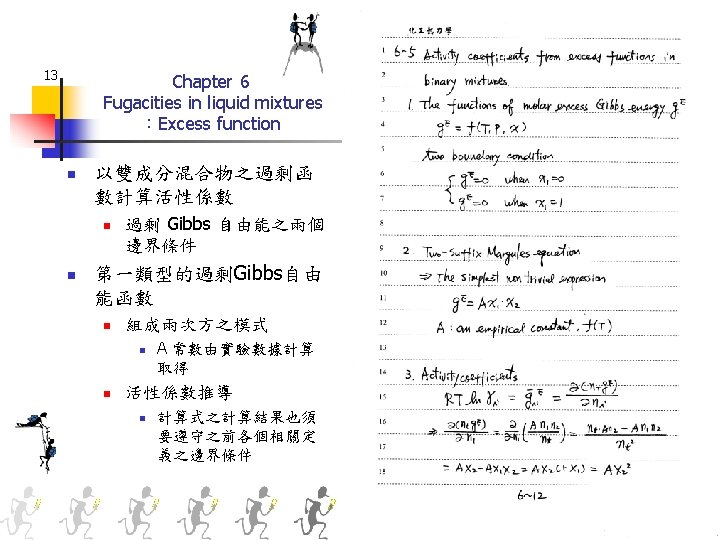 13
Chapter 6
Fugacities in liquid mixtures
: Excess function
以雙成分混合物之過剩函
數計算活性係數
過剩 Gibbs 自由能之兩個
邊界條件
第一類型的過剩Gibbs自由
能函數
組成兩次方之模式
A 常數由實驗數據計算
取得
活性係數推導
計算式之計算結果也須
要遵守之前各個相關定
義之邊界條件
化工熱力學
1 6-5 Activity coefficients from excess functions in
2 binary mixtures.
3 1. The functions of molar excess Gibbs energy g^E
4 g^E = f(T, P, x)
5 two boundary condition
6 { g^E=0 when x1=0
7
8 g^E=0 when x1=1
9 2. Two-suffix Margules equation
10 ⇒ The simplest nontrivial expression
11 g^E = A x1·x2
12 A: an empirical constant, f(T)
13
14 3. Activity coefficients
15 RT ln γi = ḡi^E = ∂(nt g^E)/∂ni
16 ⇒ ∂(nt g^E)/∂n1 = ∂/∂n1 (A n1 n2/nt) = (nt·A n2 − A n1 n2)/nt²
17
18 = A x2 − A x1 x2 = A x2(1−x1) = A x2²
6~12